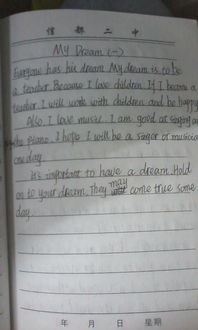 信都二中
My Dream (一)
Everyone has his dream. My dream is to be
a teacher. Because I love children. If I became a
teacher. I will work with children and be happy
Also. I love music. I am good at singing and
the Piano. I hope I will be a sager or musician
one day.
It's important to have a dream. Hold
on to your dream. They may come true some
day.
年 月 日 星期